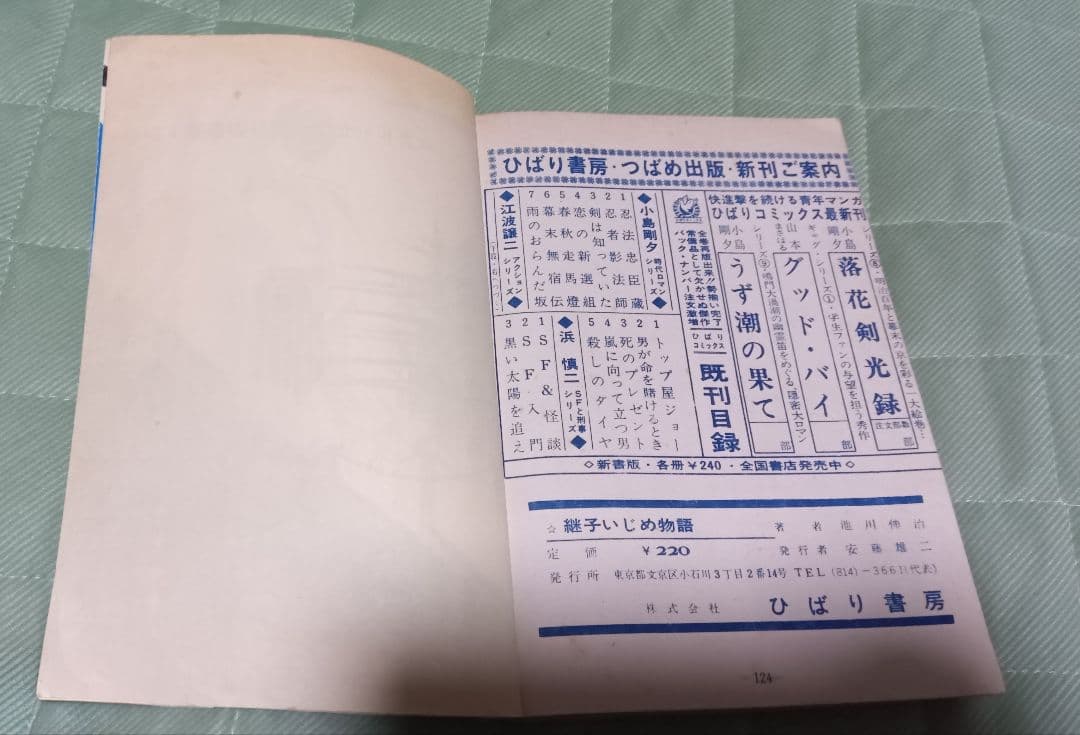 ひばり書房・つばめ出版・新刊ご案内
快進撃を続ける青年マンガ
ひばりコミックス最新刊
シリーズ⑧・明治百年と幕末の京を彩る一大絵巻…
小島剛夕
落花剣光録
注文部数
部
ギャグ・シリーズ①・学生ファンの与望を担う秀作
山本まさはる
グッド・バイ
部
シリーズ⑨・鳴門大渦潮の幽霊笛をめぐる、隠密大ロマン
小島剛夕
うず潮の果て
部
全巻再版出来!!勢揃い完了
常備品として欠かせぬ傑作
バック・ナンバー注文激増
ひばりコミックス
既刊目録
◆小島剛夕 時代ロマンシリーズ◆
1 忍法忠臣蔵
2 忍者影法師
3 剣は知っていた
4 恋の新選組
5 春秋走馬燈
6 幕末無宿伝
7 雨のおらんだ坂
◆江波譲二 アクションシリーズ◆
1 トップ屋ジョー
2 男が命を賭けるとき
3 死のプレゼント
4 嵐に向って立つ男
5 殺しのダイヤ
◆浜慎二 SFと刑事シリーズ◆
1 SF&怪談
2 SF入門
3 黒い太陽を追え
◇新書版・各冊¥240・全国書店発売中◇
☆ 継子いじめ物語
著者 池川伸治
定価 ¥220
発行者 安藤雄二
発行所 東京都文京区小石川3丁目2番14号 TEL(814)-3661(代表)
株式会社 ひばり書房
124